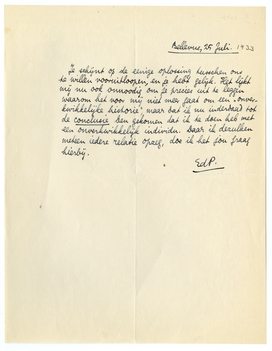 Bellevue, 25 Juli 1933
Je schijnt op de eenige oplossing tusschen ons
te willen vooruitloopen, en je hebt gelijk. Het lijkt
mij nu ook onnoodig om je precies uit te leggen
waarom het voor mij niet meer gaat om een "onver-
kwikkelijke historie", maar dat ik nu inderdaad tot
de conclusie ben gekomen dat ik te doen heb met
een onverkwikkelijk individu. Daar ik dezulken
meteen iedere relatie opzeg, doe ik het jou graag
hierbij.
EdP.